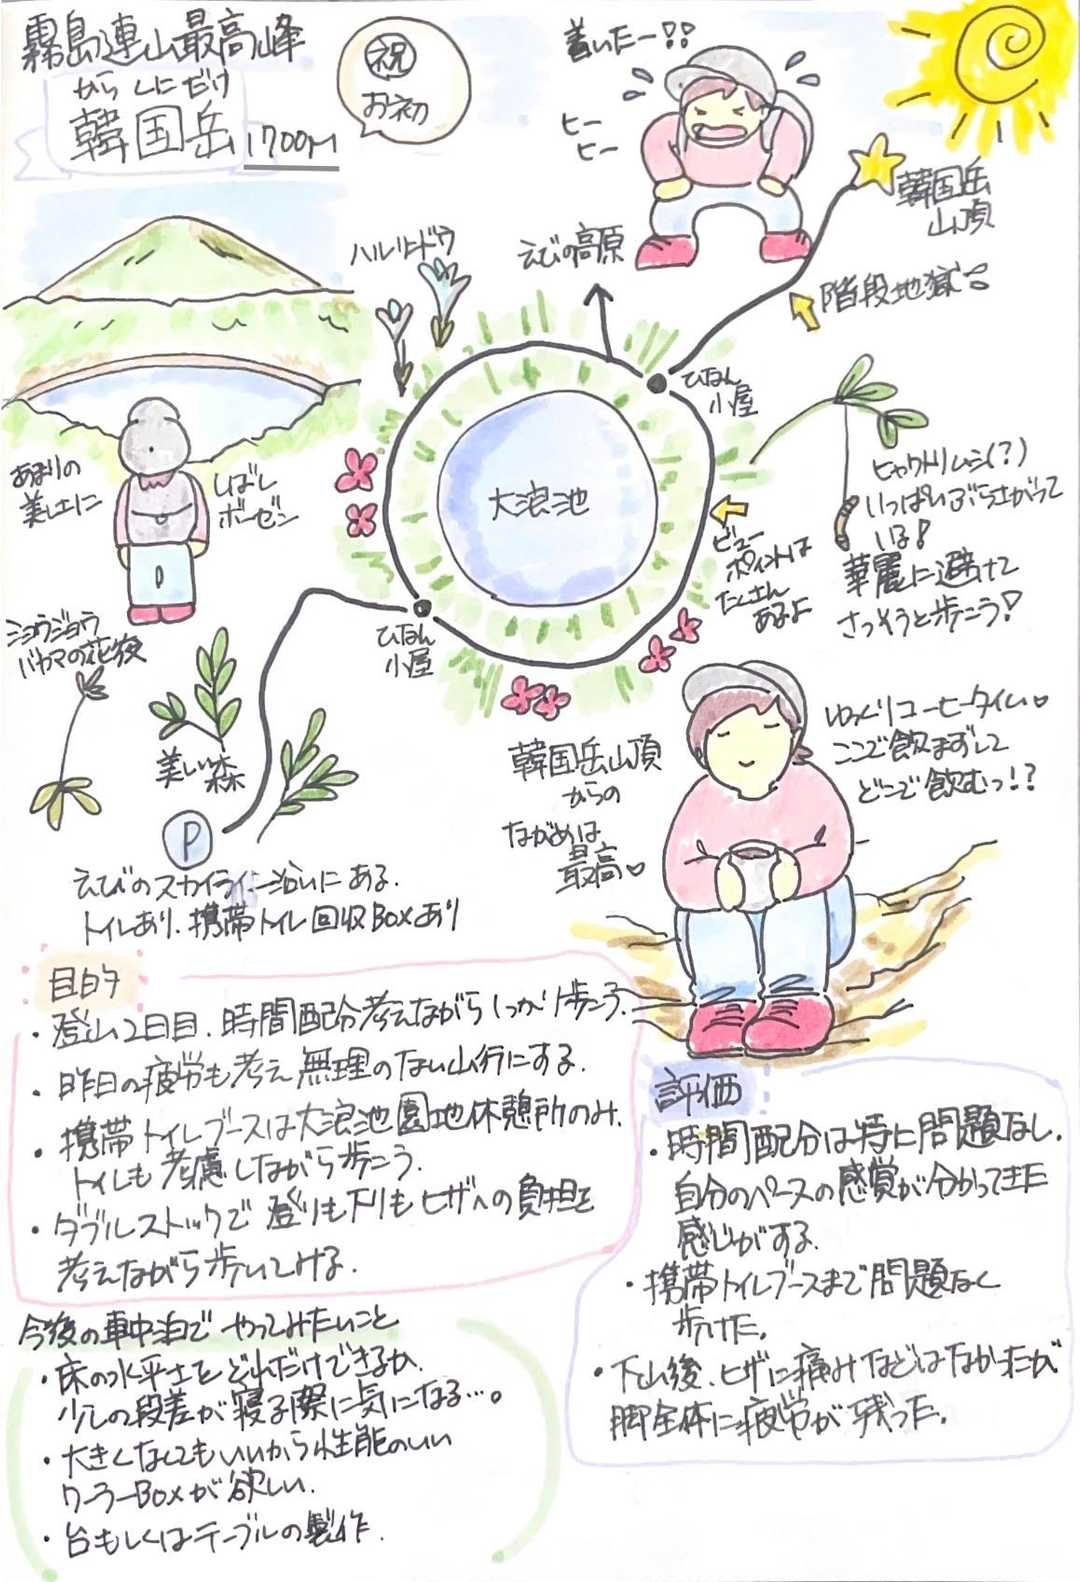 霧島連山最高峰
からくにだけ
韓国岳 1700M
祝
お初
着いたー!!
ヒー
ヒー
韓国岳
山頂
えびの高原
階段地獄
ハルリンドウ
ひなん
小屋
大浪池
あまりの
美しさに
しばし
ボーゼン
ビュー
ポイントは
たくさん
あるよ
ヒャクトリムシ(?)
いっぱいぶらさがって
いる!
華麗に避けて
さっそうと歩こう!
ショウジョウ
バカマの花後
ひなん
小屋
美しい森
P
えびのスカイライン沿いにある.
トイレあり. 携帯トイレ回収Boxあり
韓国岳山頂
からの
ながめは
最高♡
ゆっくりコーヒータイム♡
ここで飲まずして
どこで飲むっ!?
目的
・登山2日目. 時間配分考えながらしっかり歩こう.
・昨日の疲労も考え無理のない山行にする.
・携帯トイレブースは大浪池園地休憩所のみ.
トイレも考慮しながら歩こう.
・ダブルストックで登りも下りもヒザへの負担を
考えながら歩いてみる.
評価
・時間配分は特に問題なし.
自分のペースの感覚が分かってきた
感じがする.
・携帯トイレブースまで問題なく
歩けた.
・下山後、ヒザに痛みなどはなかったが
脚全体に疲労が残った.
今後の車中泊でやってみたいこと
・床の水平さをどれだけできるか.
少しの段差が寝る際に気になる…。
・大きくなってもいいから性能のいい
クーラーBoxが欲しい.
・台もしくはテーブルの製作.